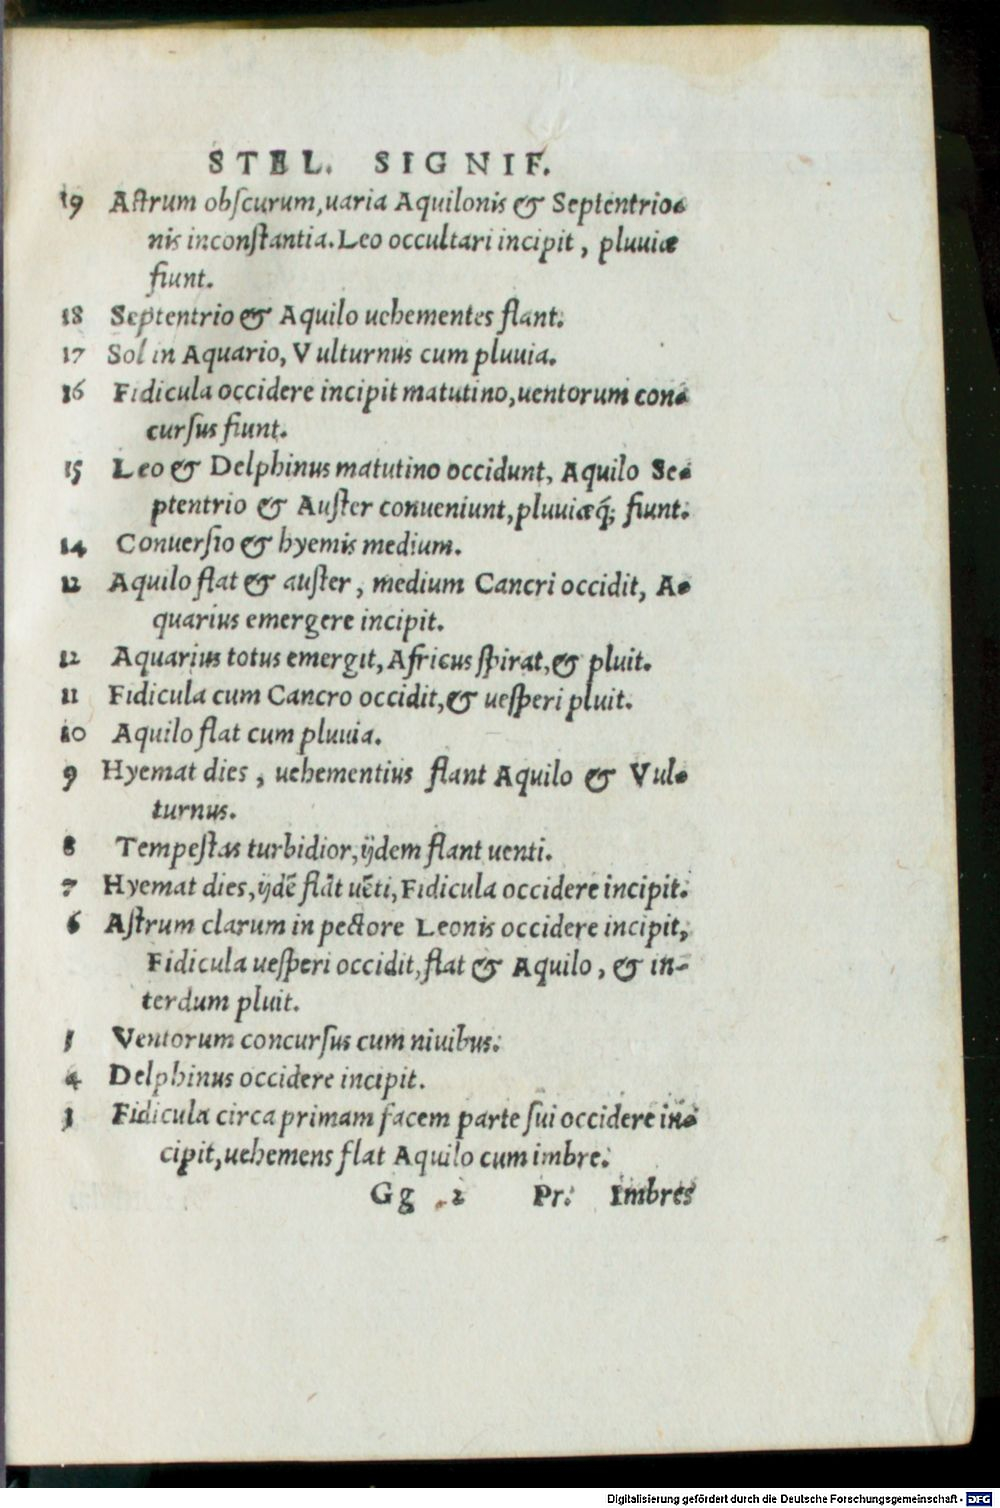 STEL. SIGNIF.
19 Aſtrum obſcurum, uaria Aquilonis & Septentrio-
nis inconſtantia. Leo occultari incipit, pluuiæ
fiunt.
18 Septentrio & Aquilo uehementes flant.
17 Sol in Aquario, Vulturnus cum pluuia.
16 Fidicula occidere incipit matutino, uentorum con-
curſus fiunt.
15 Leo & Delphinus matutino occidunt, Aquilo Se-
ptentrio & Auſter conueniunt, pluuiæq́; fiunt.
14 Conuerſio & hyemis medium.
12 Aquilo flat & auſter, medium Cancri occidit, A-
quarius emergere incipit.
12 Aquarius totus emergit, Africus ſpirat, & pluit.
11 Fidicula cum Cancro occidit, & ueſperi pluit.
10 Aquilo flat cum pluuia.
9 Hyemat dies, uehementius flant Aquilo & Vul-
turnus.
8 Tempeſtas turbidior, ijdem flant uenti.
7 Hyemat dies, ijdē flāt uēti, Fidicula occidere incipit.
6 Aſtrum clarum in pectore Leonis occidere incipit,
Fidicula ueſperi occidit, flat & Aquilo, & in-
terdum pluit.
5 Ventorum concurſus cum niuibus.
4 Delphinus occidere incipit.
3 Fidicula circa primam facem parte ſui occidere in-
cipit, uehemens flat Aquilo cum imbre.
Gg 2 Pr. Imbres
Digitalisierung gefördert durch die Deutsche Forschungsgemeinschaft - DFG